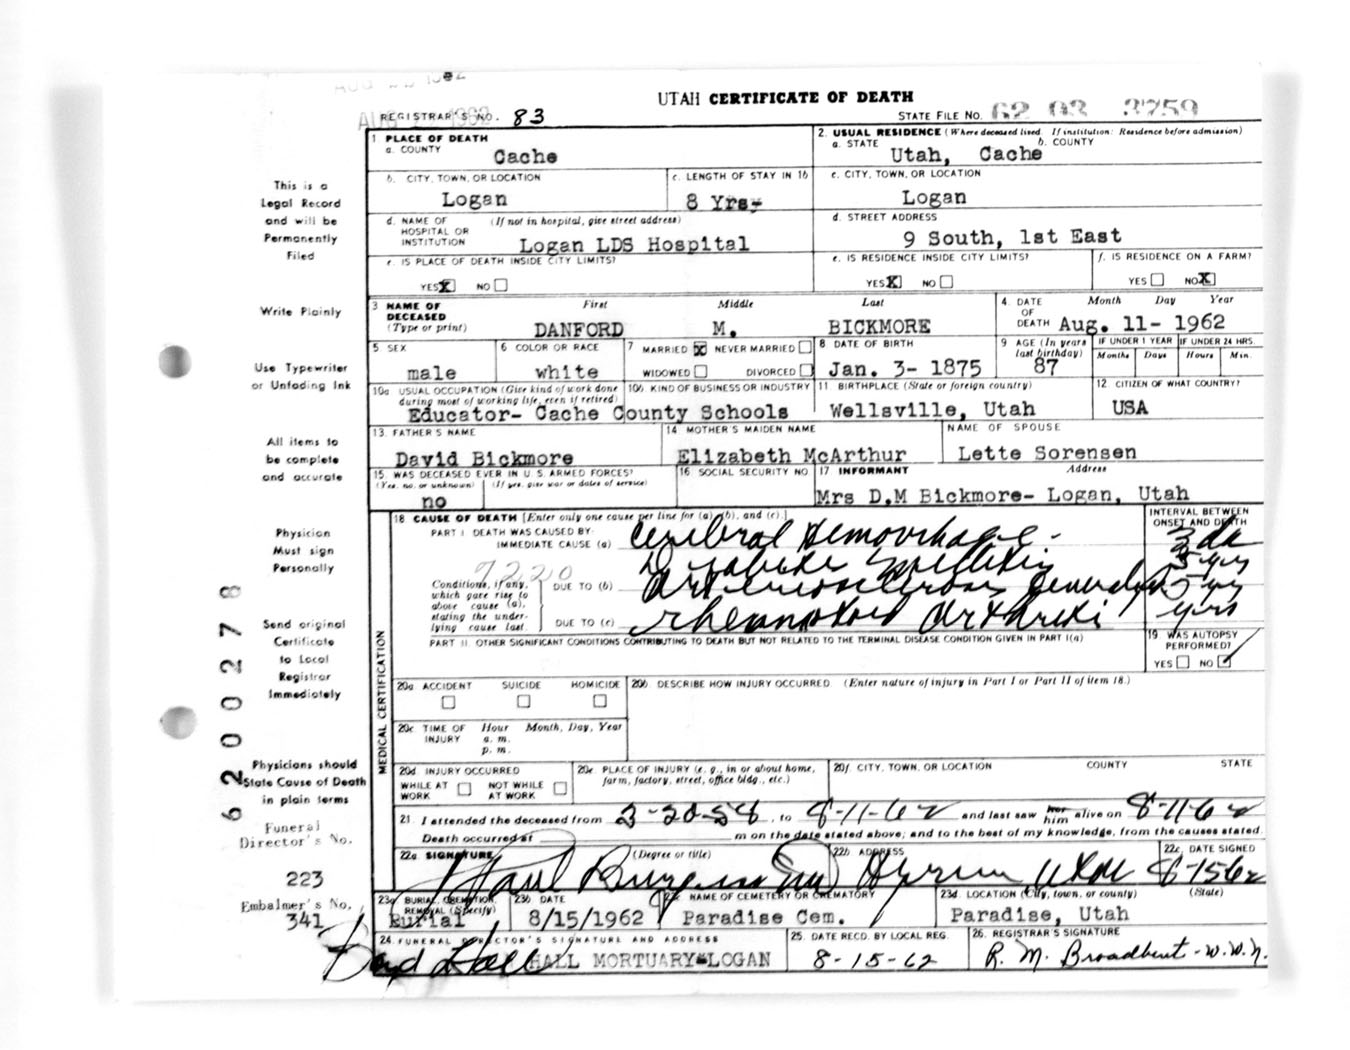 UTAH CERTIFICATE OF DEATH
REGISTRAR'S NO. 83
STATE FILE NO. 62 03 3759
1 PLACE OF DEATH
a. COUNTY
Cache
2. USUAL RESIDENCE (Where deceased lived. If institution: Residence before admission)
a. STATE b. COUNTY
Utah, Cache
b. CITY, TOWN, OR LOCATION
Logan
c. LENGTH OF STAY IN 1b
8 Yrs-
c. CITY, TOWN, OR LOCATION
Logan
d. NAME OF HOSPITAL OR INSTITUTION (If not in hospital, give street address)
Logan LDS Hospital
d. STREET ADDRESS
9 South, 1st East
e. IS PLACE OF DEATH INSIDE CITY LIMITS?
YES X NO
e. IS RESIDENCE INSIDE CITY LIMITS?
YES X NO
f. IS RESIDENCE ON A FARM?
YES NO X
3 NAME OF DECEASED (Type or print)
First Middle Last
DANFORD M. BICKMORE
4. DATE OF DEATH Month Day Year
Aug. 11- 1962
5 SEX
male
6 COLOR OR RACE
white
7 MARRIED X NEVER MARRIED
WIDOWED DIVORCED
8 DATE OF BIRTH
Jan. 3- 1875
9 AGE (In years last birthday)
87
IF UNDER 1 YEAR IF UNDER 24 HRS.
Months Days Hours Min.
10a USUAL OCCUPATION (Give kind of work done during most of working life, even if retired)
10b KIND OF BUSINESS OR INDUSTRY
Educator- Cache County Schools
11 BIRTHPLACE (State or foreign country)
Wellsville, Utah
12 CITIZEN OF WHAT COUNTRY?
USA
13. FATHER'S NAME
David Bickmore
14 MOTHER'S MAIDEN NAME
Elizabeth McArthur
NAME OF SPOUSE
Lette Sorensen
15 WAS DECEASED EVER IN U S ARMED FORCES?
(Yes, no, or unknown) (If yes, give war or dates of service)
no
16 SOCIAL SECURITY NO
17 INFORMANT Address
Mrs D.M Bickmore- Logan, Utah
18 CAUSE OF DEATH [Enter only one cause per line for (a), (b), and (c).]
INTERVAL BETWEEN ONSET AND DEATH
PART I. DEATH WAS CAUSED BY:
IMMEDIATE CAUSE (a) Cerebral Hemorrhage -
3 da
5 yrs
7220
Conditions, if any, which gave rise to above cause (a), stating the underlying cause last.
DUE TO (b) Arteriosclerosis
DUE TO (c) Rheumatoid
yrs
PART II. OTHER SIGNIFICANT CONDITIONS CONTRIBUTING TO DEATH BUT NOT RELATED TO THE TERMINAL DISEASE CONDITION GIVEN IN PART I(a)
19 WAS AUTOPSY PERFORMED?
YES NO
MEDICAL CERTIFICATION
20a ACCIDENT SUICIDE HOMICIDE
20b. DESCRIBE HOW INJURY OCCURRED. (Enter nature of injury in Part I or Part II of item 18.)
20c TIME OF INJURY Hour Month, Day, Year
a. m.
p. m.
20d INJURY OCCURRED
WHILE AT WORK NOT WHILE AT WORK
20e. PLACE OF INJURY (e. g., in or about home, farm, factory, street, office bldg., etc.)
20f. CITY, TOWN, OR LOCATION COUNTY STATE
21. I attended the deceased from 2-20-58, to 8-11-62 and last saw her him alive on 8-11-62
Death occurred at m on the date stated above; and to the best of my knowledge, from the causes stated.
22a SIGNATURE (Degree or title)
22b ADDRESS
Hyrum Utah
22c. DATE SIGNED
8-15-62
23a BURIAL, CREMATION, REMOVAL (Specify)
Burial
23b DATE
8/15/1962
23c NAME OF CEMETERY OR CREMATORY
Paradise Cem.
23d. LOCATION (City, town, or county) (State)
Paradise, Utah
24. FUNERAL DIRECTOR'S SIGNATURE AND ADDRESS
Hall HALL MORTUARY-LOGAN
25. DATE RECD. BY LOCAL REG.
8-15-62
26. REGISTRAR'S SIGNATURE
R. M. Broadbent - W.W.N.
This is a
Legal Record
and will be
Permanently
Filed
Write Plainly
Use Typewriter
or Unfading Ink
All items to
be complete
and accurate
Physician
Must sign
Personally
Send original
Certificate
to Local
Registrar
Immediately
Physicians should
State Cause of Death
in plain terms
Funeral
Director's No.
223
Embalmer's No.
341
62 00278